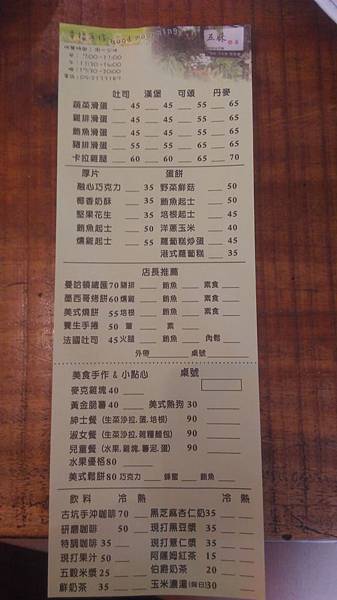 幸福手作 Good morning
五穌
早 : 7:00-11:00
午 : 11:30-14:00
晚 : 17:30-20:00
吐司 漢堡 可頌 丹麥
蔬菜滑蛋 45 45 55 65
雞排滑蛋 45 45 55 65
鮪魚滑蛋 45 45 55 65
豬排滑蛋 45 45 55 65
卡拉雞腿 60 60 65 70
厚片 蛋餅
融心巧克力 35 野菜鮮菇 50
椰香奶酥 35 鮪魚起士 50
堅果花生 35 培根起士 45
鮪魚起士 50 洋蔥玉米 40
燻雞起士 55 蘿蔔糕炒蛋 45
港式蘿蔔糕 35
店長推薦
曼哈頓總匯70 豬排 鮪魚 素食
墨西哥烤餅60 燻雞 鮪魚 素食
美式燒餅 55 培根 鮪魚 素食
養生手捲 50 葷 素
法國吐司 45 火腿 鮪魚 肉鬆
外帶 桌號
美食手作 & 小點心 桌號
麥克雞塊 40
黃金脆薯 40 美式熱狗 30
紳士餐 (生菜沙拉.蛋.培根) 90
淑女餐 (生菜沙拉.雜糧麵包) 90
兒童餐 (水果.雞塊.薯泥.蛋) 90
水果優格 80
美式鬆餅 80 巧克力 蜂蜜 鮪魚
飲料 冷 熱 冷 熱
古坑手沖咖啡 70 黑芝麻杏仁奶 35
研磨咖啡 50 現打黑豆漿 30
特調咖啡 35 現打薏仁漿 30
現打果汁 50 阿薩姆紅茶 15
五穀米漿 25 伯爵奶茶 20
鮮奶茶 35 玉米濃湯(假日)30